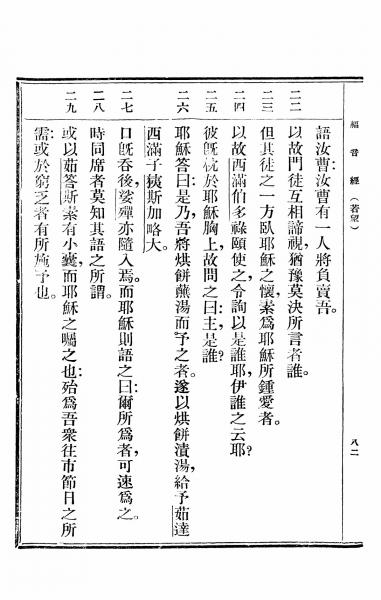 福音經（若望）
八二
語汝曹:汝曹有一人將負賣吾。
二二 以故門徒互相諦視,猶豫莫決所言者誰。
二三 但其徒之一方臥耶穌之懷,素爲耶穌所鍾愛者。
二四 以故西滿伯多祿頤使之,令詢以是誰耶,伊誰之云耶?
二五 彼旣枕於耶穌胸上,故問之曰:主,是誰?
二六 耶穌答曰:是乃吾將烘餅蘸湯而予之者。遂以烘餅漬湯,給予茹達
西滿子狹斯加略大。
二七 口旣吞後,娑殫亦隨入焉。而耶穌則語之曰:爾所爲者,可速爲之。
二八 時同席者莫知其語之所謂。
二九 或以茹答斯素有小囊,而耶穌之囑之也:殆爲吾衆往市節日之所
需,或於窮乏者有所施予也。